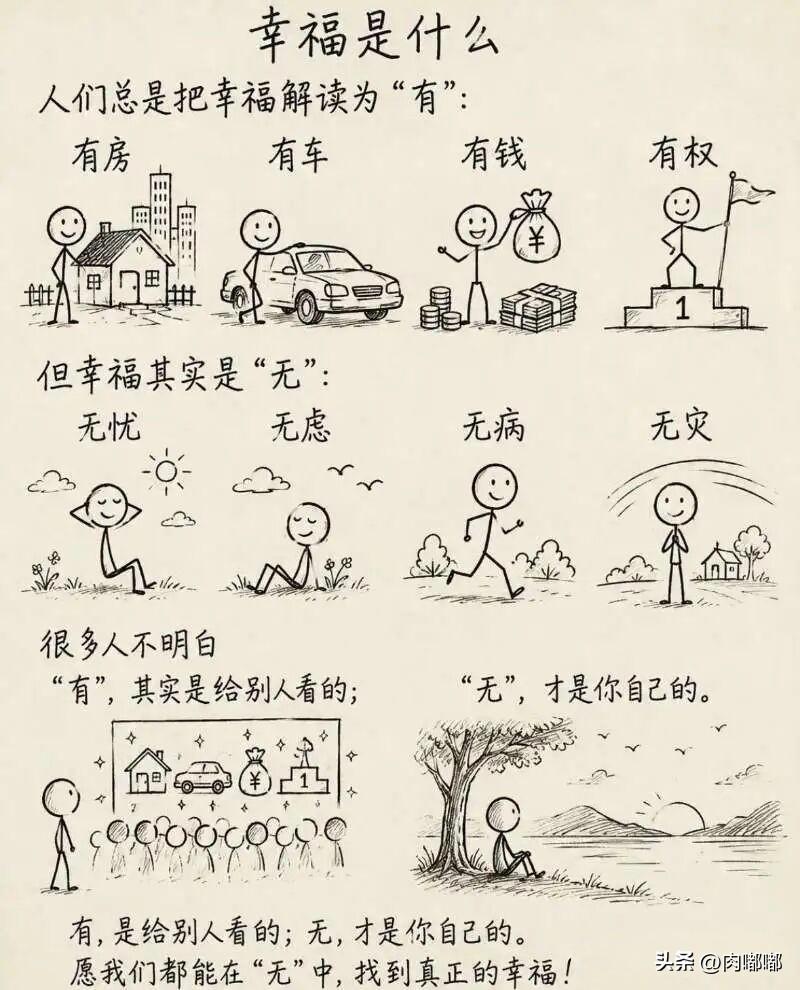 幸福是什么
人们总是把幸福解读为“有”：
有房 有车 有钱 有权
¥
1
但幸福其实是“无”：
无忧 无虑 无病 无灾
很多人不明白
“有”，其实是给别人看的； “无”，才是你自己的。
¥ 1
有，是给别人看的；无，才是你自己的。
愿我们都能在“无”中，找到真正的幸福！
头条 @肉嘟嘟